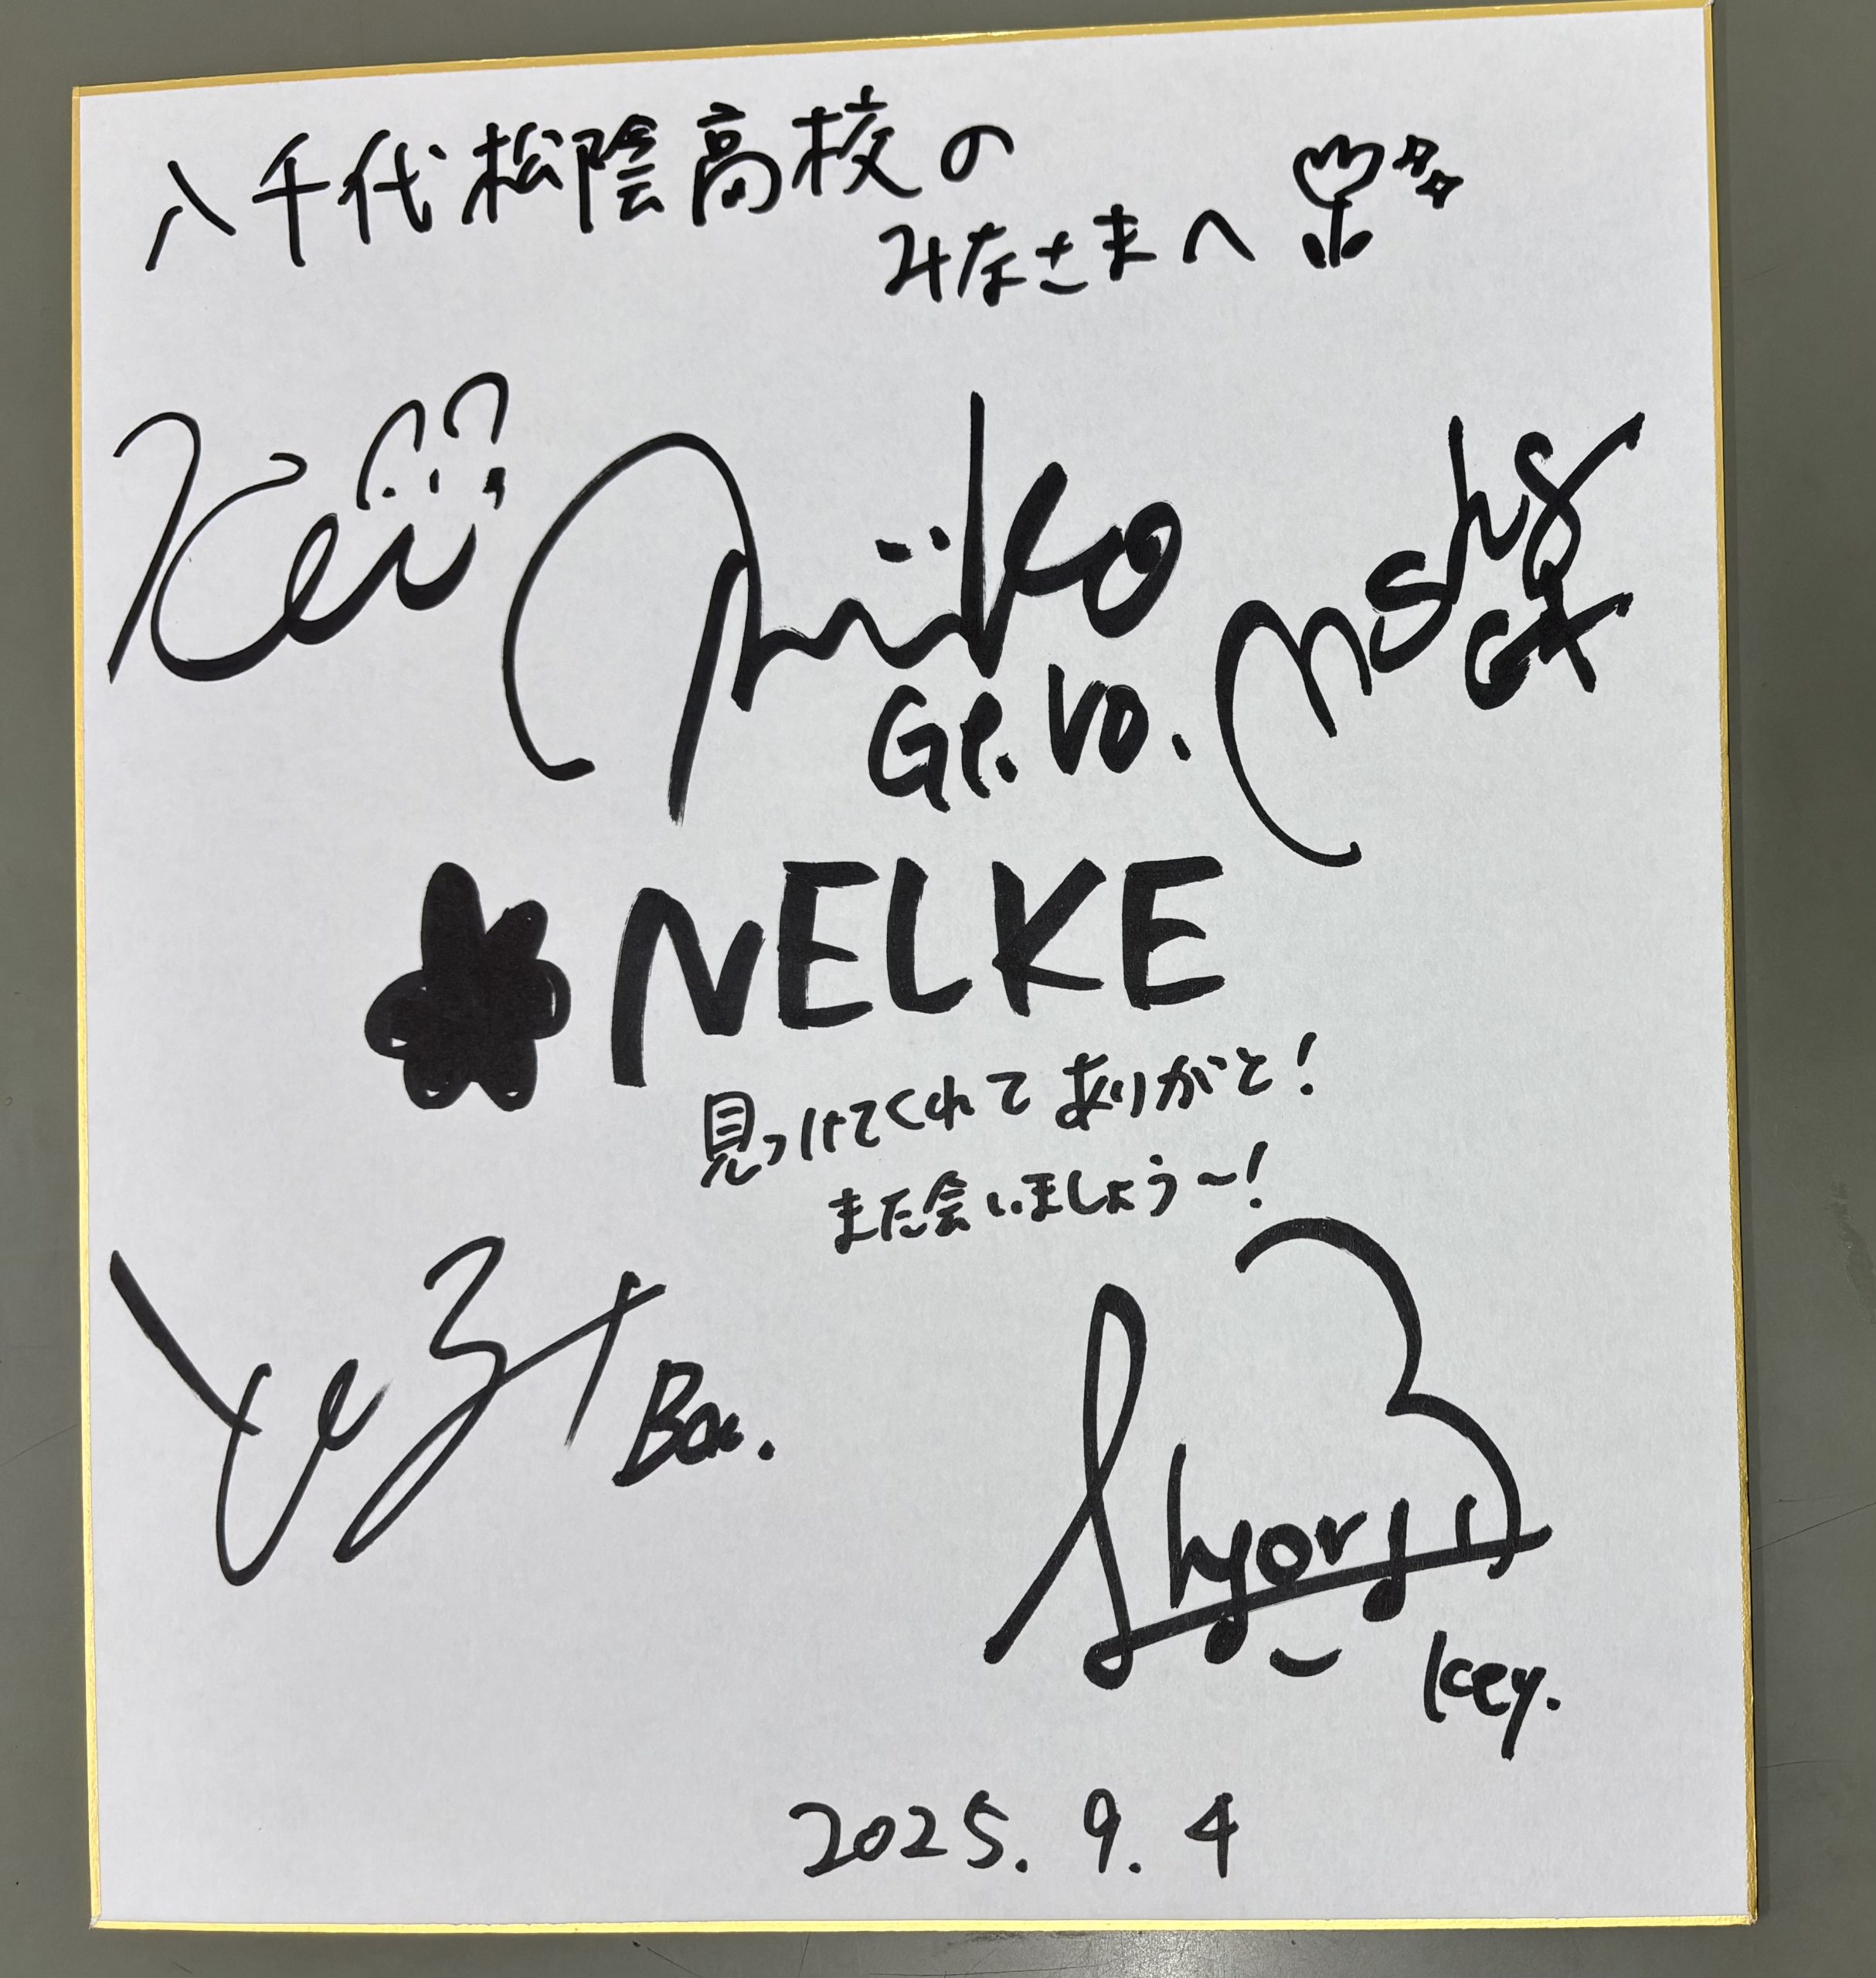 八千代松陰高校の
みなさまへ
Kei
miiko
Gt.Vo.
Gt
NELKE
見つけてくれてありがと！
また会いましょう〜！
Ba.
Key.
2025.9.4